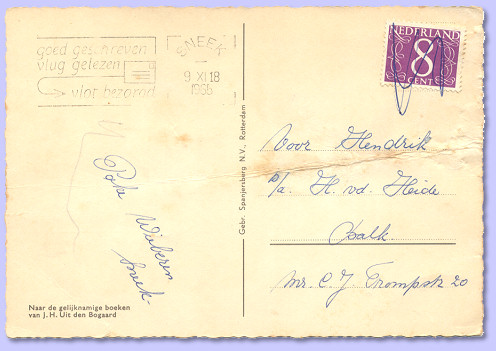 goed geschreven
vlug gelezen
vlot bezorgd
SNEEK
9 XI 18
1966
NEDERLAND
8
CENT
Pake Wieberen
Sneek
Naar de gelijknamige boeken
van J. H. Uit den Bogaard
Gebr. Spanjersberg N.V., Rotterdam
Voor Hendrik
p/a. H. vd. Heide
Balk.
Mr. C. J. Trompstr 20